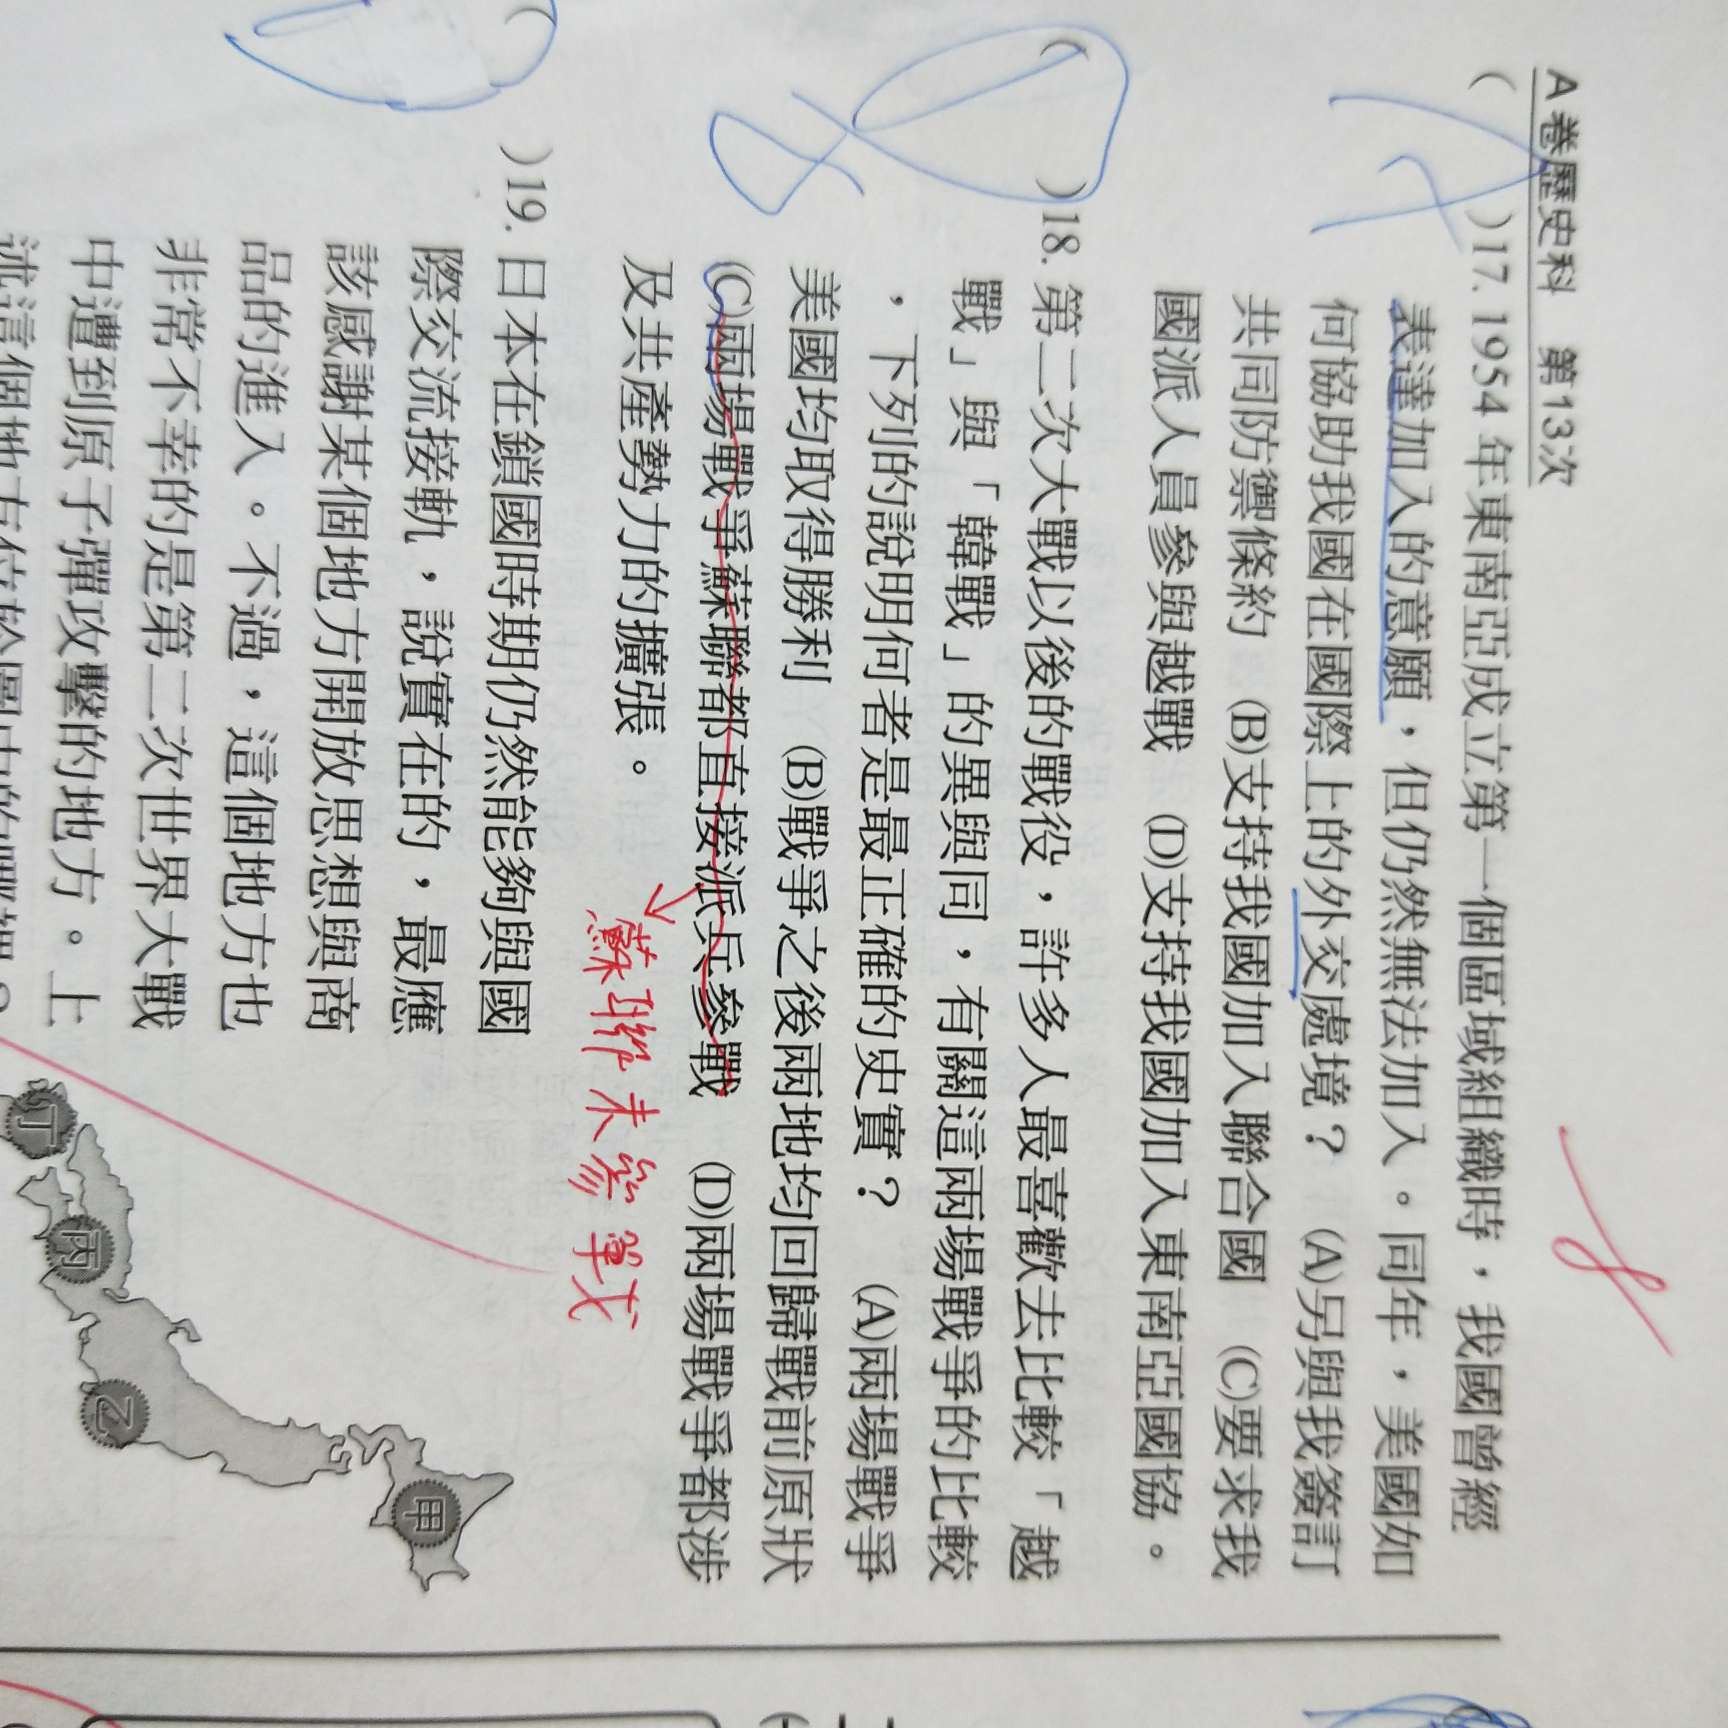 A卷歷史科 第13次
( )17. 1954 年東南亞成立第一個區域組織時，我國曾經
表達加入的意願，但仍然無法加入。同年，美國如
何協助我國在國際上的外交處境？ (A)另與我簽訂
共同防禦條約 (B)支持我國加入聯合國 (C)要求我
國派人員參與越戰 (D)支持我國加入東南亞國協。
( )18. 第二次大戰以後的戰役，許多人最喜歡去比較「越
戰」與「韓戰」的異與同，有關這兩場戰爭的比較
，下列的說明何者是最正確的史實？ (A)兩場戰爭
美國均取得勝利 (B)戰爭之後兩地均回歸戰前原狀
(C)兩場戰爭蘇聯都直接派兵參戰 (D)兩場戰爭都涉
及共產勢力的擴張。
蘇聯未參戰
( )19. 日本在鎖國時期仍然能夠與國
際交流接軌，說實在的，最應
該感謝某個地方開放思想與商
品的進入。不過，這個地方也
非常不幸的是第二次世界大戰
中遭到原子彈攻擊的地方。上
甲
乙
丙
丁